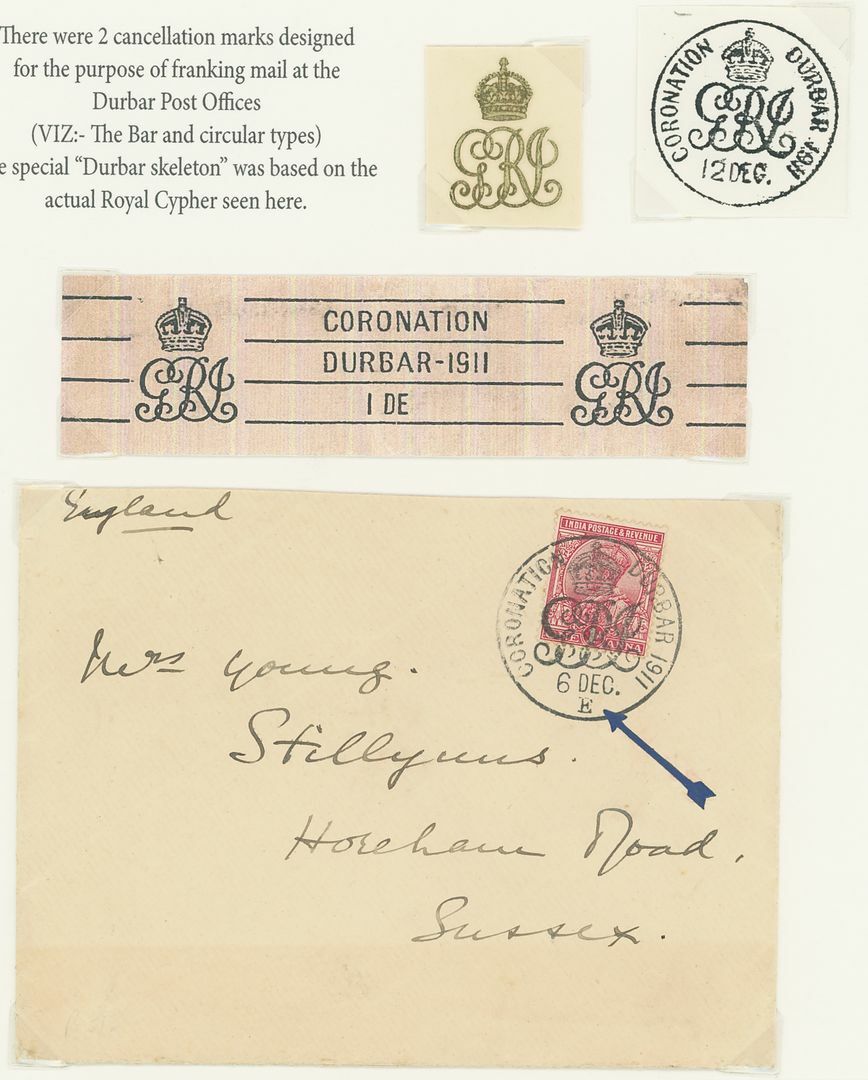 There were 2 cancellation marks designed
for the purpose of franking mail at the
Durbar Post Offices
(VIZ:- The Bar and circular types)
e special “Durbar skeleton” was based on the
actual Royal Cypher seen here.
GRI
CORONATION DURBAR 1911
GRI
12 DEC.
CORONATION
DURBAR-1911
1 DE
GRI
GRI
England
INDIA POSTAGE & REVENUE
ANNA
CORONATION DURBAR 1911
GRI
6 DEC.
E
Mrs Young.
Stillyuns.
Horeham Road,
Sussex.